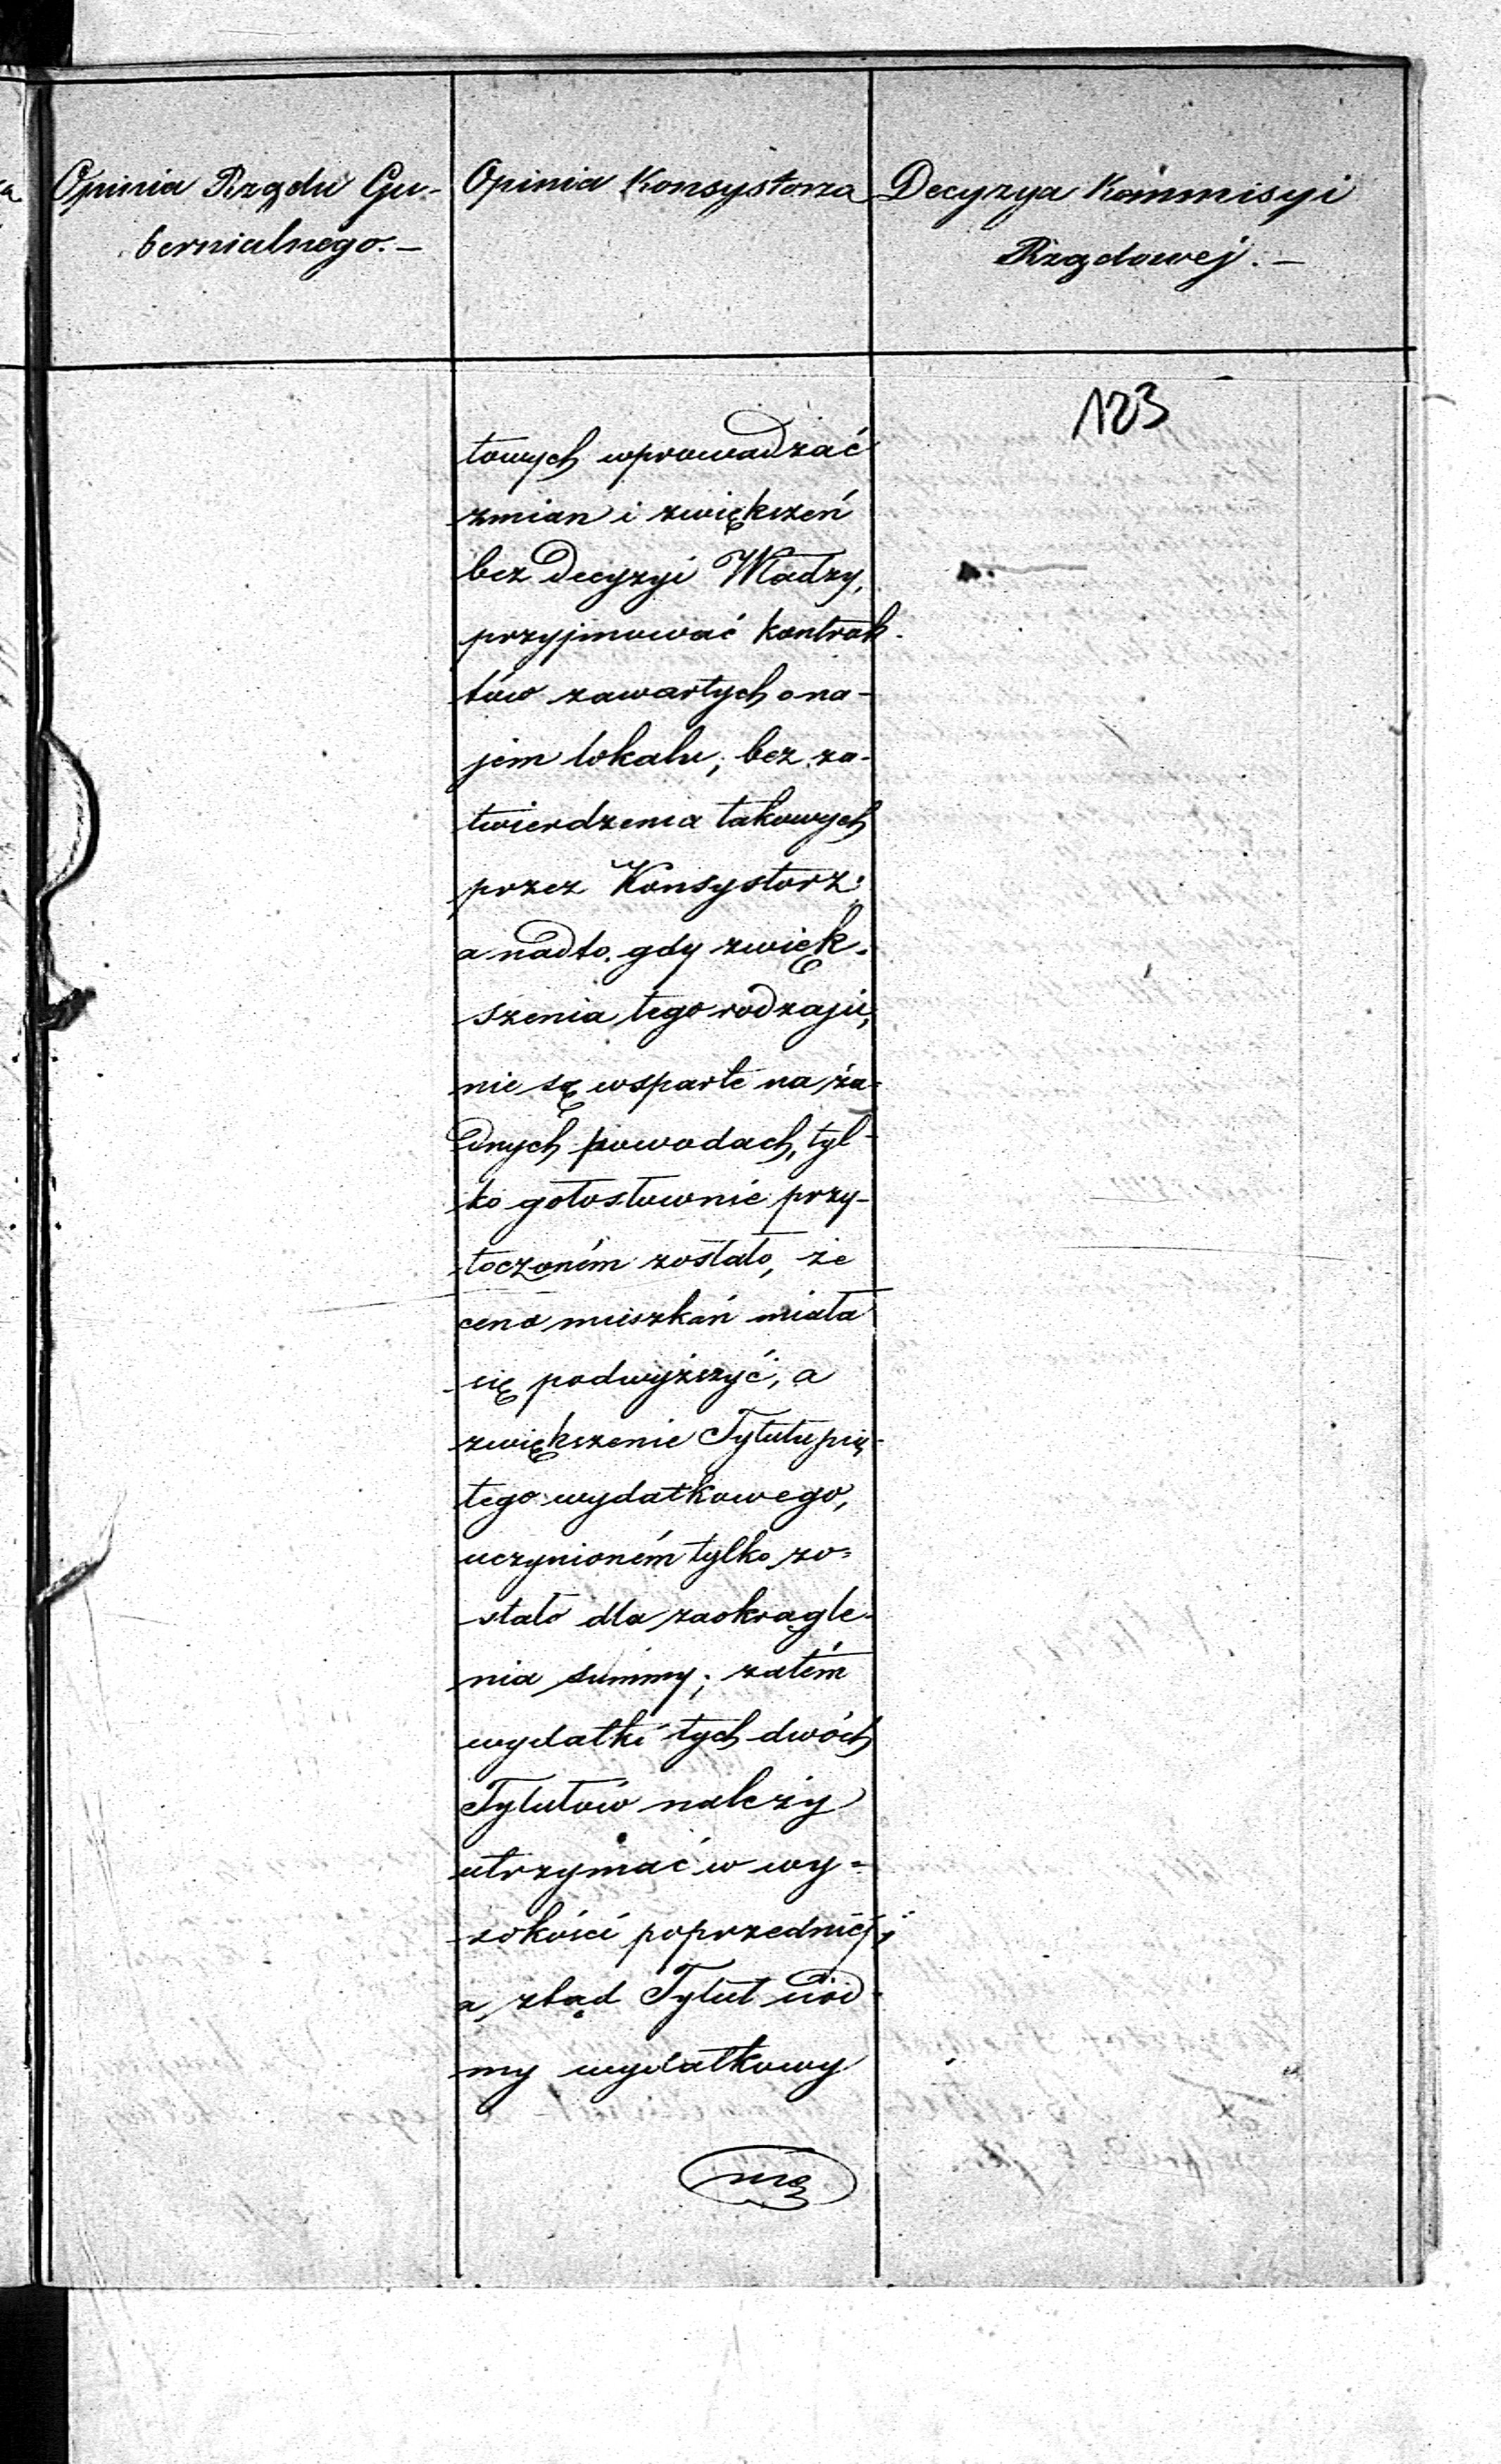 Opinia Rządu Gu-
bernialnego. —
Opinia Konsystorza
Decyzya Kommisyi
Rządowej. —
123
towych wprowadzać
zmian i zwiększeń
bez Decyzyi Władzy,
przyjmować kontrak-
tów zawartych o na-
jem lokalu, bez za-
twierdzenia takowych
przez Konsystorz;
a nadto, gdy zwięk-
szenia tego rodzaju,
nie są wsparte na ża-
dnych powodach, tyl-
ko gołosłownie przy-
toczoném zostało, że
cena mieszkań miała
się podwyższyć, a
zwiększenie Tytułu pią-
tego wydatkowego,
uczynioném tylko zo-
stało dla zaokrągle-
nia summy; zatém
wydatki tych dwóch
Tytułów należy
utrzymać w wy-
sokości poprzedniéj;
a ztąd Tytuł siód-
my wydatkowy